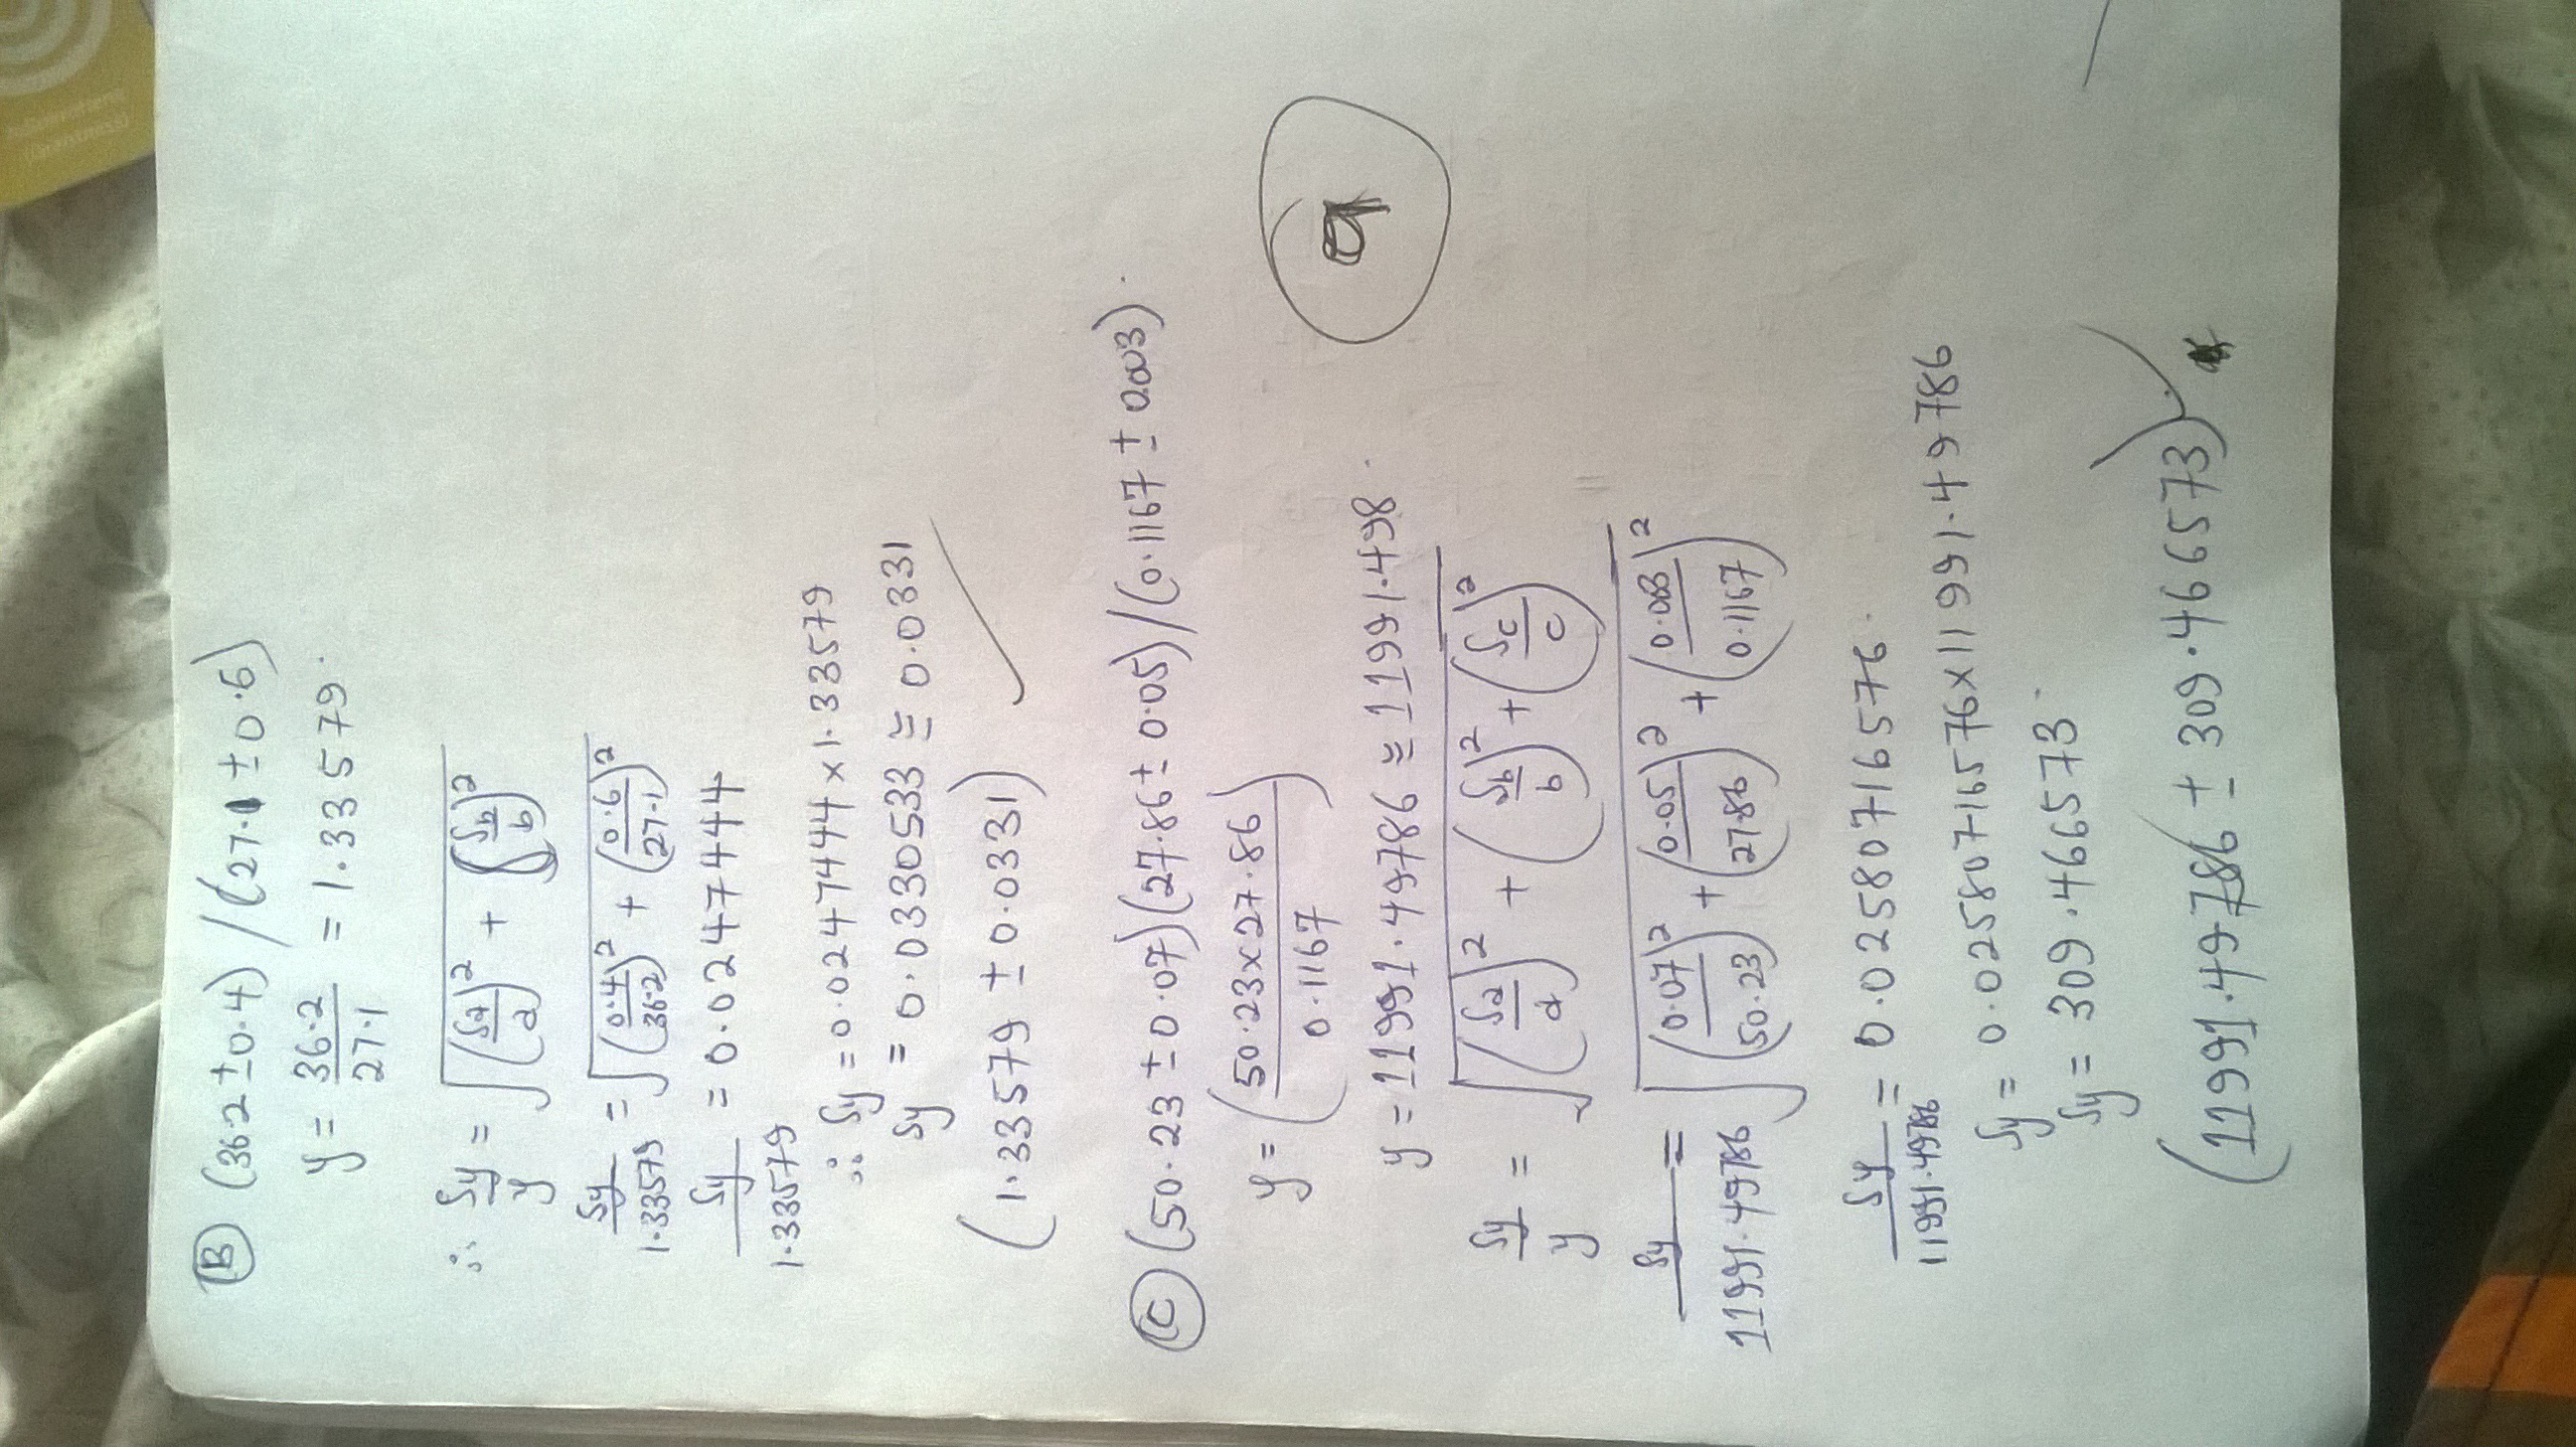 Ⓑ (36.2 ± 0.4) / (27.1 ± 0.6)
y = 36.2/27.1 = 1.33579.
∴ Sy/y = √((Sa/a)² + (Sb/b)²)
Sy/1.33579 = √((0.4/36.2)² + (0.6/27.1)²)
Sy/1.33579 = 0.0247444
∴ Sy = 0.0247444 × 1.33579
Sy = 0.0330533 ≅ 0.0331
(1.33579 ± 0.0331)
Ⓒ (50.23 ± 0.07)(27.86 ± 0.05) / (0.1167 ± 0.003).
y = (50.23 × 27.86 / 0.1167)
y = 11991.49786 ≅ 11991.498.
Sy/y = √((Sa/a)² + (Sb/b)² + (Sc/c)²)
Sy/11991.49786 = √((0.07/50.23)² + (0.05/27.86)² + (0.003/0.1167)²)
Sy/11991.49786 = 0.02580716576.
Sy = 0.02580716576 × 11991.49786
Sy = 309.466573.
(11991.49786 ± 309.466573)